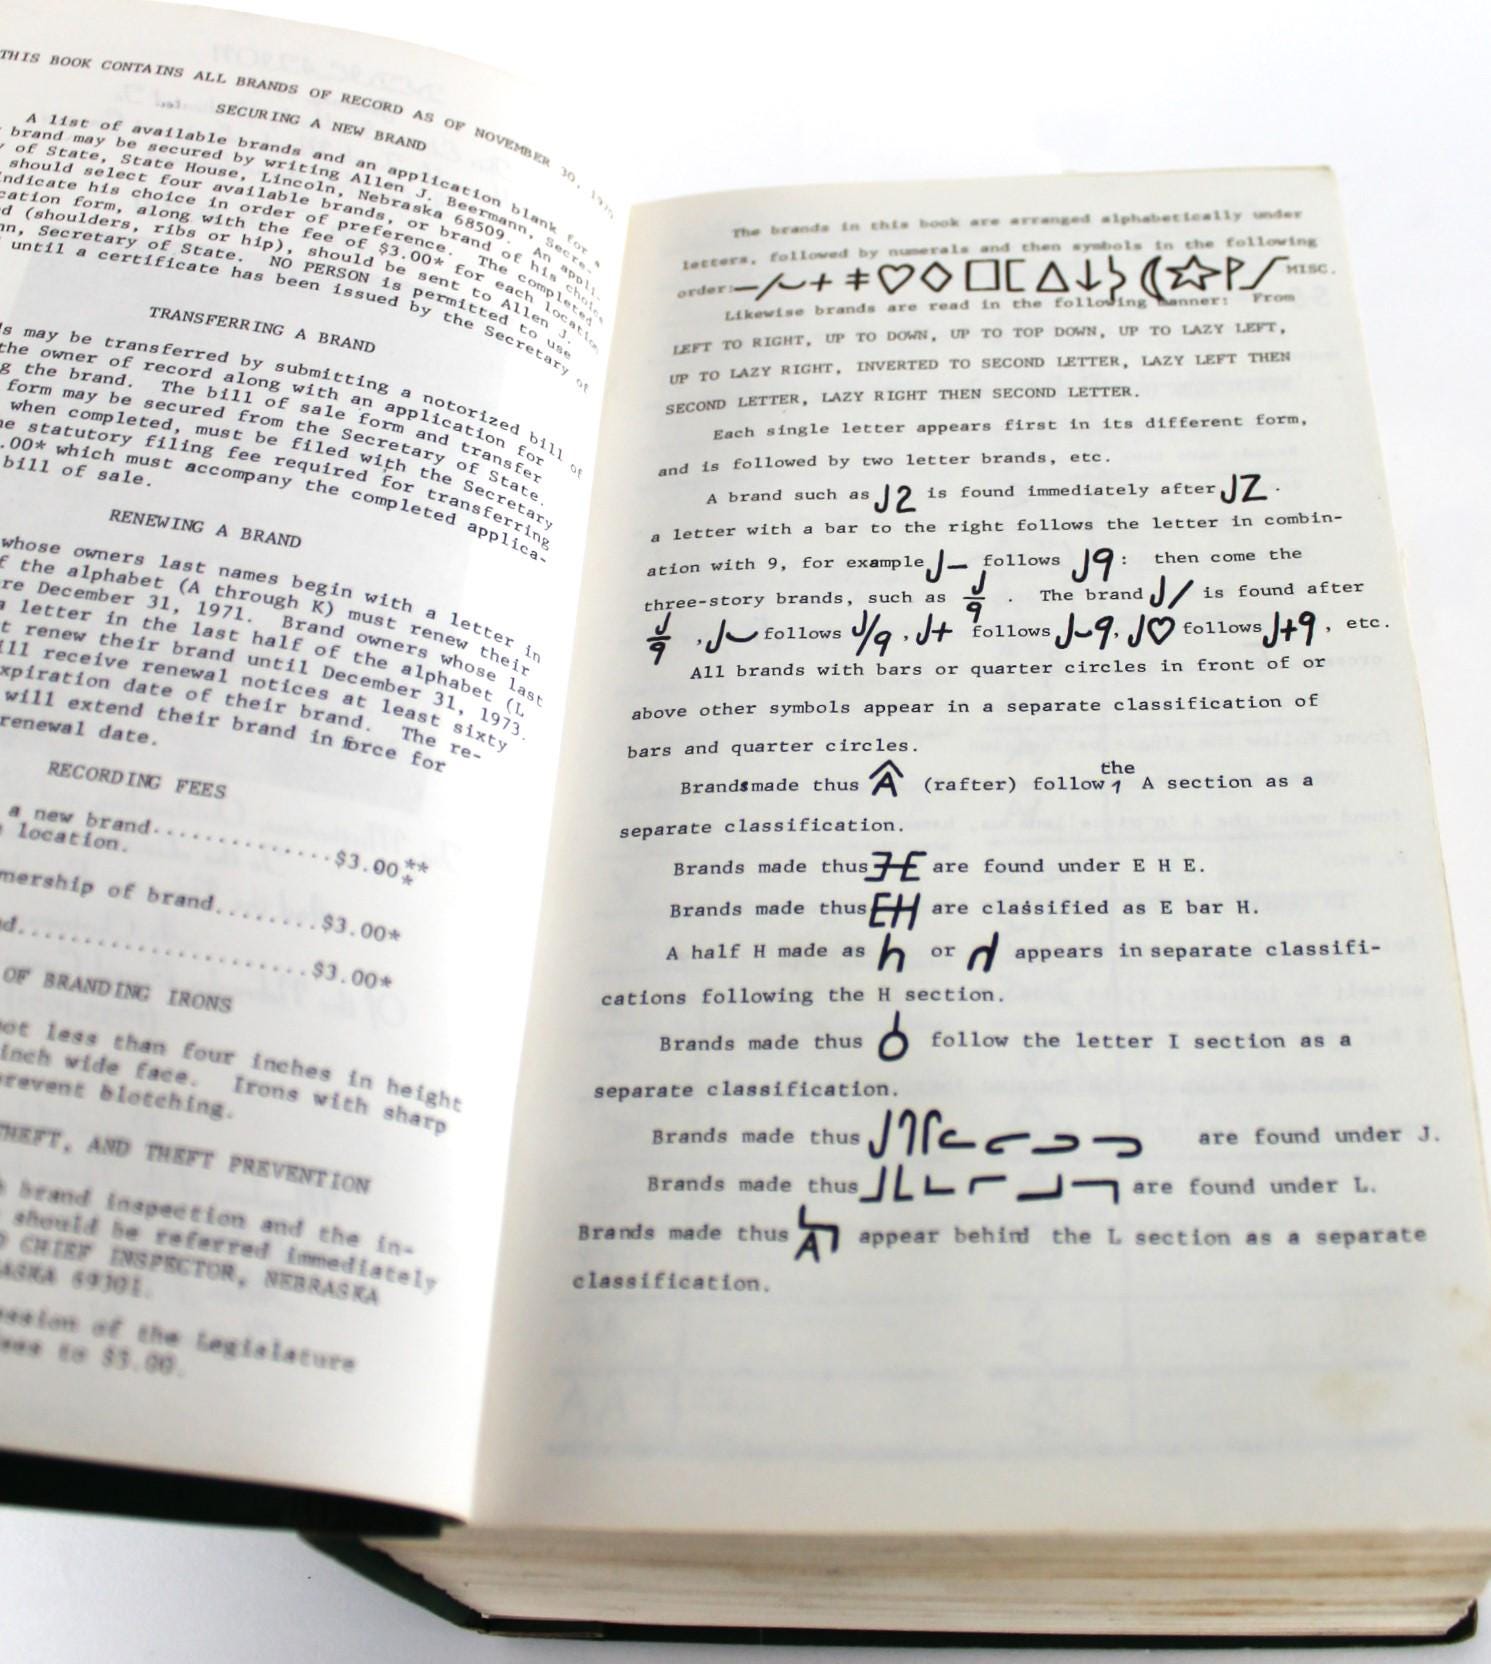 THIS BOOK CONTAINS ALL BRANDS OF RECORD AS OF NOVEMBER 30,
SECURING A NEW BRAND
A list of available brands and an application blank for
brand may be secured by writing Allen J. Beermann, Secre-
of State, State House, Lincoln, Nebraska 68509. An appli-
should select four available brands, or brand of his choice
indicate his choice in order of preference. The completed
cation form, along with the fee of $3.00* for each location
(shoulders, ribs or hip), should be sent to Allen J.
Secretary of State. NO PERSON is permitted to use
until a certificate has been issued by the Secretary of
TRANSFERRING A BRAND
may be transferred by submitting a notorized bill of
the owner of record along with an application for
the brand. The bill of sale form and transfer
form may be secured from the Secretary of State.
when completed, must be filed with the Secretary
statutory filing fee required for transferring
.00* which must accompany the completed applica-
bill of sale.
RENEWING A BRAND
whose owners last names begin with a letter in
the alphabet (A through K) must renew their
December 31, 1971. Brand owners whose last
a letter in the last half of the alphabet (L
renew their brand until December 31, 1973.
receive renewal notices at least sixty
expiration date of their brand. The re-
will extend their brand in force for
renewal date.
RECORDING FEES
a new brand.............$3.00**
location. *
ownership of brand........$3.00*
......................$3.00*
OF BRANDING IRONS
not less than four inches in height
inch wide face. Irons with sharp
prevent blotching.
THEFT, AND THEFT PREVENTION
brand inspection and the in-
should be referred immediately
CHIEF INSPECTOR, NEBRASKA
69301.
session of the Legislature
to $3.00.
The brands in this book are arranged alphabetically under
letters, followed by numerals and then symbols in the following
order: MISC.
Likewise brands are read in the following manner: From
LEFT TO RIGHT, UP TO DOWN, UP TO TOP DOWN, UP TO LAZY LEFT,
UP TO LAZY RIGHT, INVERTED TO SECOND LETTER, LAZY LEFT THEN
SECOND LETTER, LAZY RIGHT THEN SECOND LETTER.
Each single letter appears first in its different form,
and is followed by two letter brands, etc.
A brand such as J2 is found immediately after JZ.
a letter with a bar to the right follows the letter in combin-
ation with 9, for example J— follows J9: then come the
three-story brands, such as J/9. The brand J/ is found after
J/9, J⌣ follows J/9, J+ follows J⌣9, J♡ follows J+9, etc.
All brands with bars or quarter circles in front of or
above other symbols appear in a separate classification of
bars and quarter circles.
Brands made thus A (rafter) follow the A section as a
separate classification.
Brands made thus ƎHE are found under E H E.
Brands made thus EH are classified as E bar H.
A half H made as h or appears in separate classifi-
cations following the H section.
Brands made thus follow the letter I section as a
separate classification.
Brands made thus J are found under J.
Brands made thus L are found under L.
Brands made thus A appear behind the L section as a separate
classification.